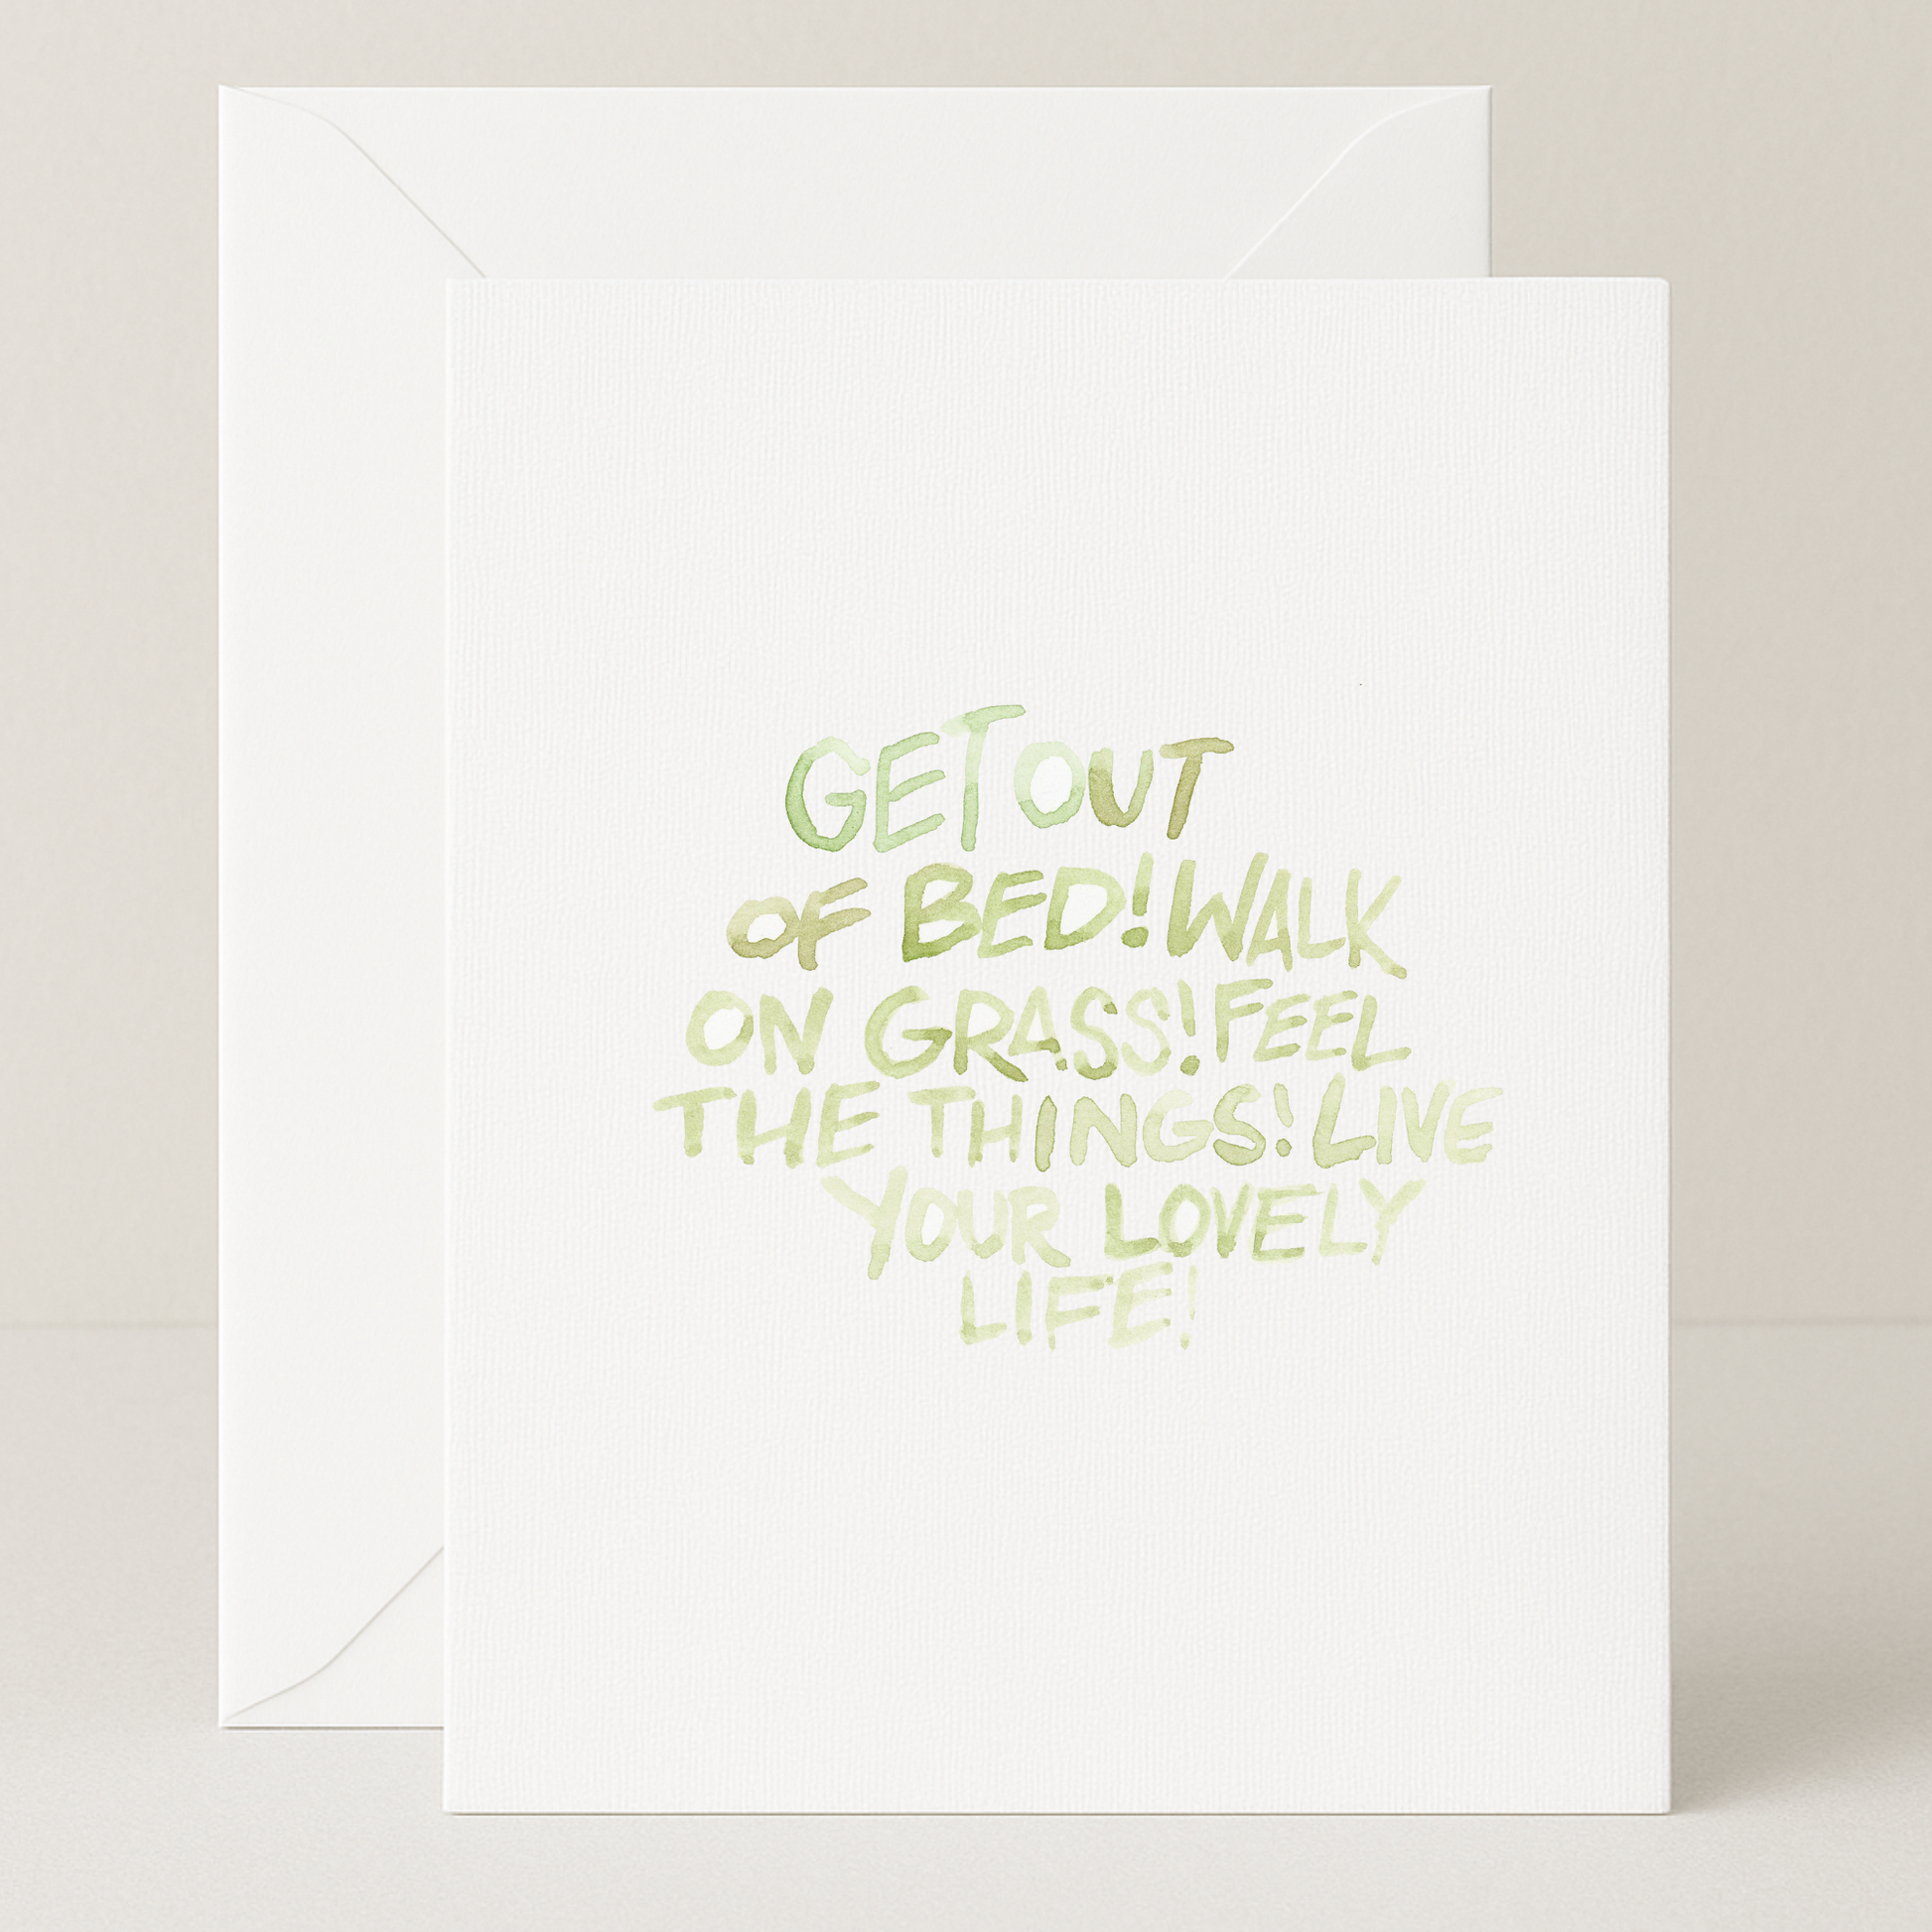 GET OUT
OF BED! WALK
ON GRASS! FEEL
THE THINGS! LIVE
YOUR LOVELY
LIFE!